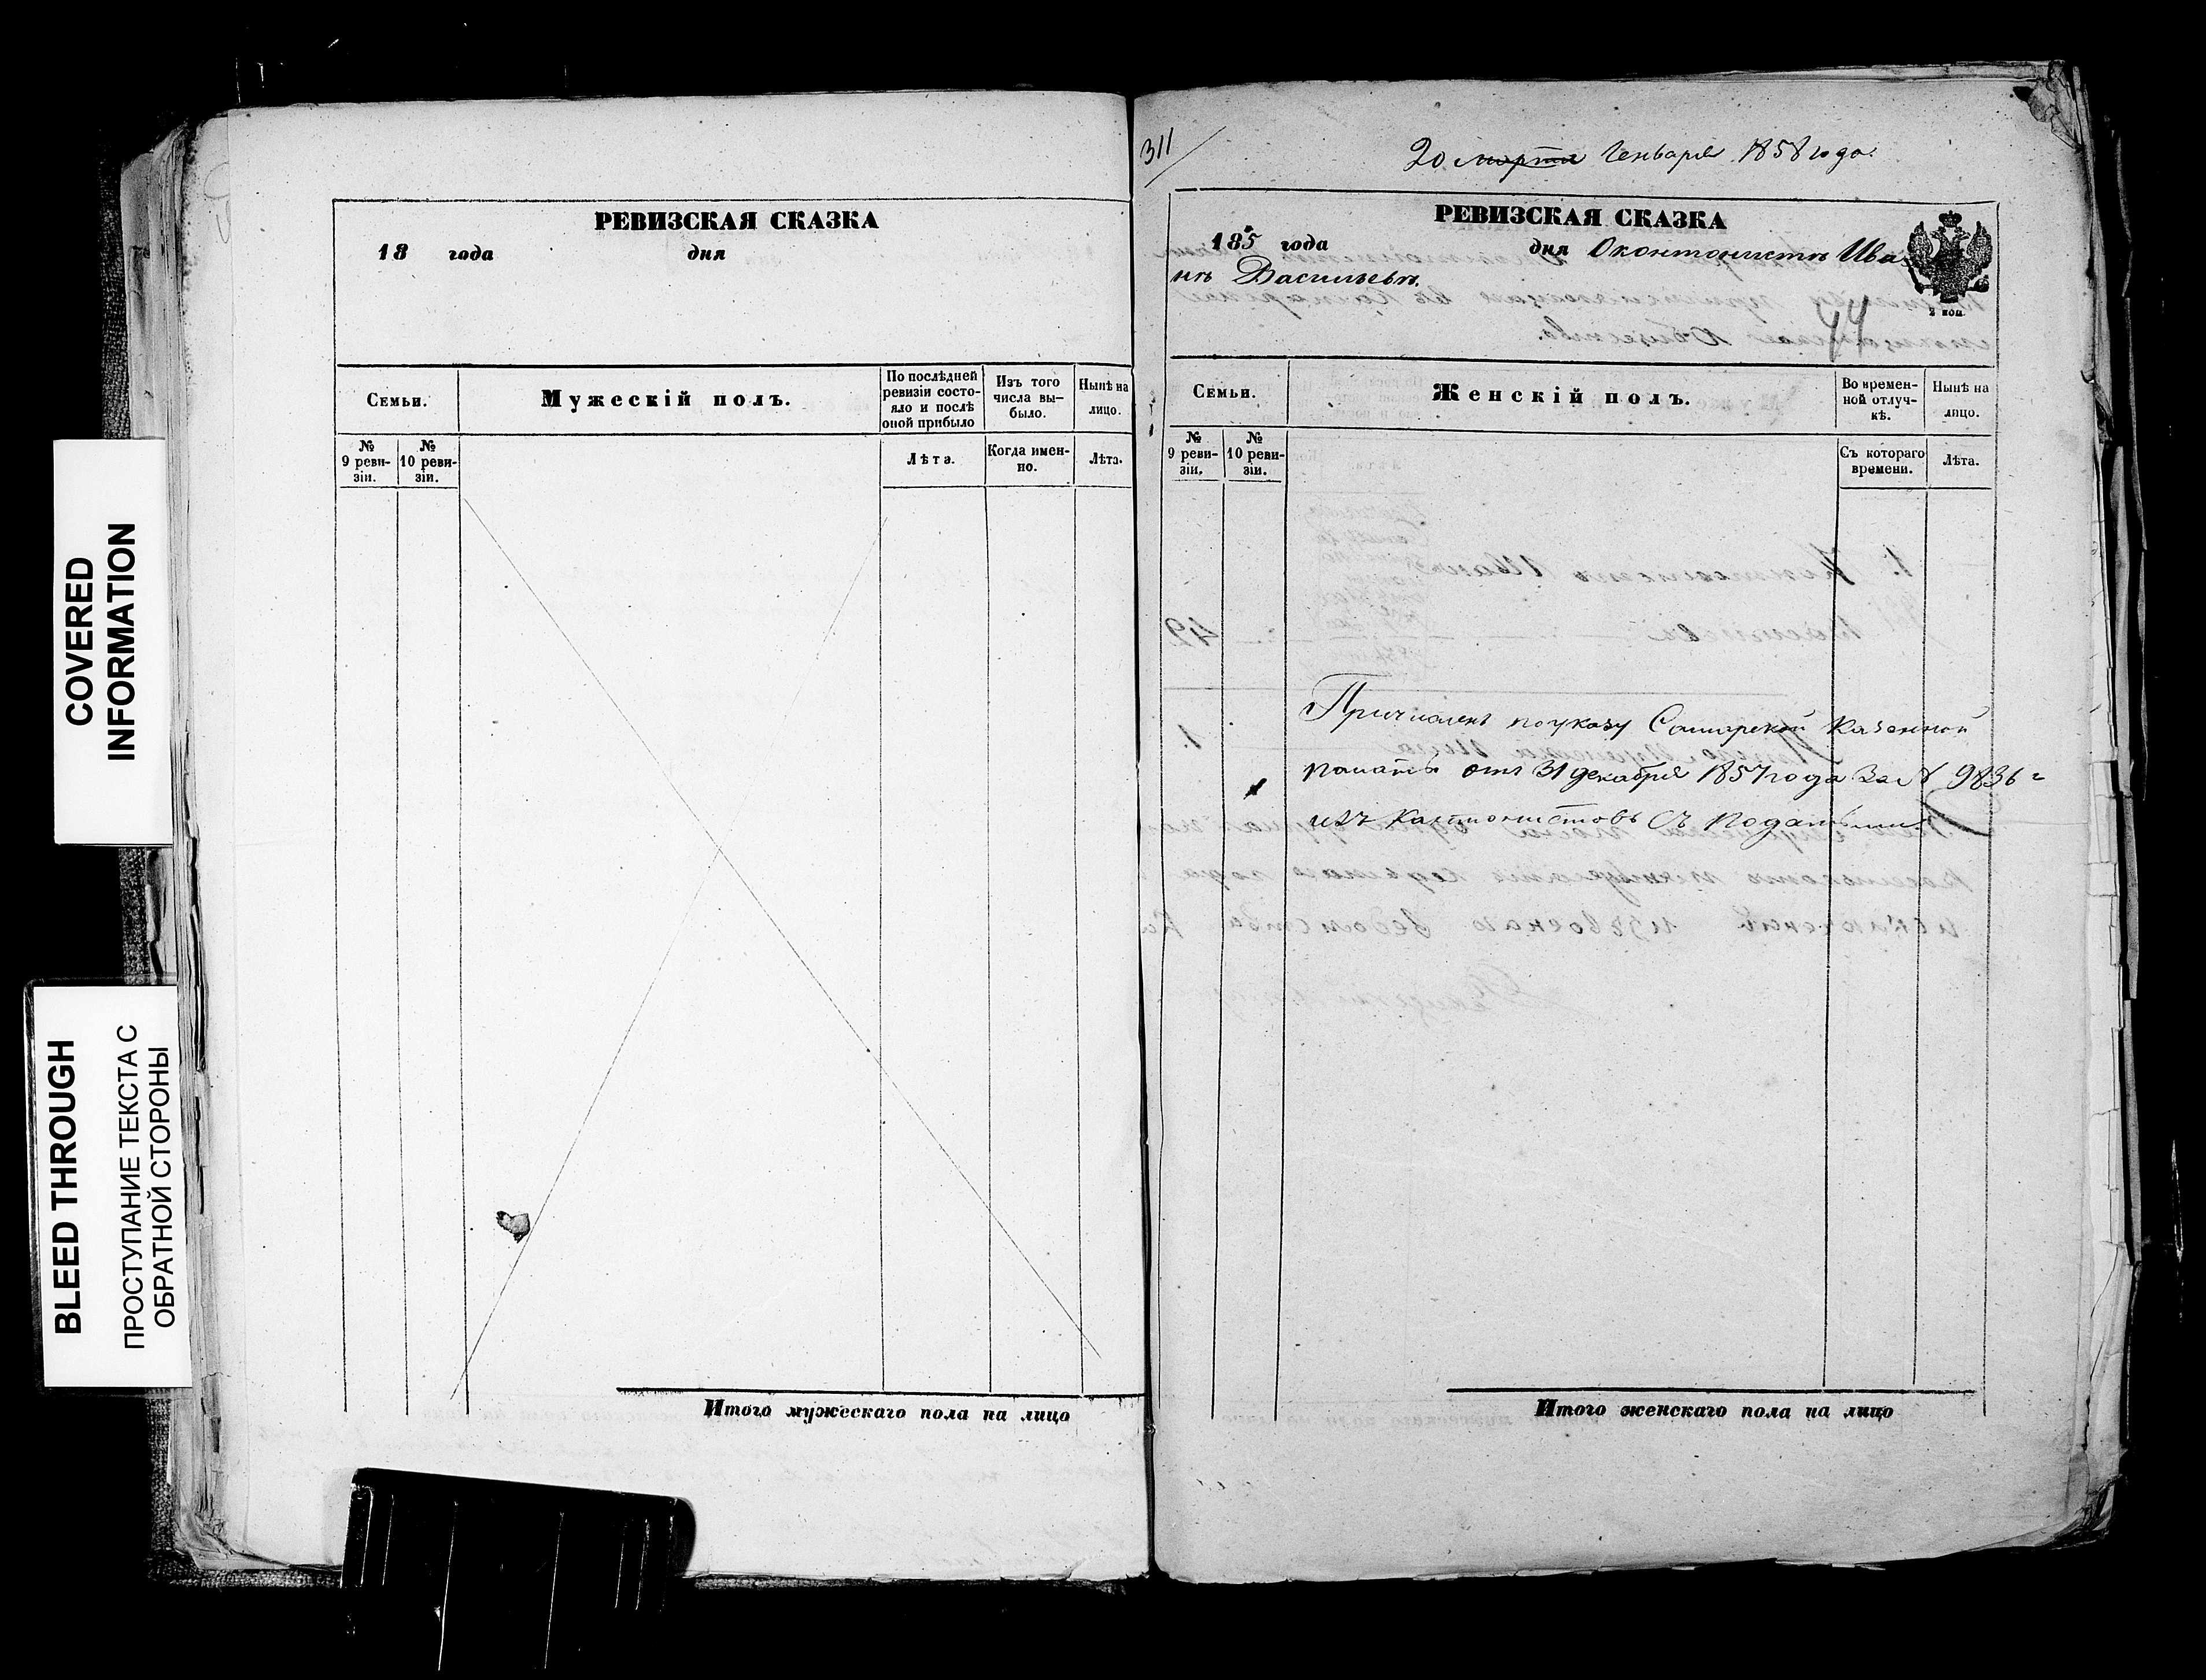 COVERED
INFORMATION
BLEED THROUGH
ПРОСТУПАНИЕ ТЕКСТА С
ОБРАТНОЙ СТОРОНЫ
РЕВИЗСКАЯ СКАЗКА
18 года дня
Семьи.
Мужескій полъ.
По послѣдней
ревизіи состо-
яло и послѣ
оной прибыло
Изъ того
числа вы-
было.
Нынѣ на
лицо.
№
9 реви-
зіи.
№
10 реви-
зіи.
Лѣта.
Когда имен-
но.
Лѣта.
Итого мужескаго пола на лицо
311
20 марта Генваря 1858 года.
РЕВИЗСКАЯ СКАЗКА
185 года дня О контонистѣ Ива
нѣ Васильевѣ.
2 коп
44
Семьи.
Женскій полъ.
Во времен-
ной отлуч-
кѣ.
Нынѣ на
лицо.
№
9 реви-
зіи.
№
10 реви-
зіи.
Съ котораго
времени.
Лѣта.
Причисленъ по указу Самарской Казенной
палаты отъ 31 декабря 1857 года за № 9836
изъ кантонистовъ съ
Итого женскаго пола на лицо